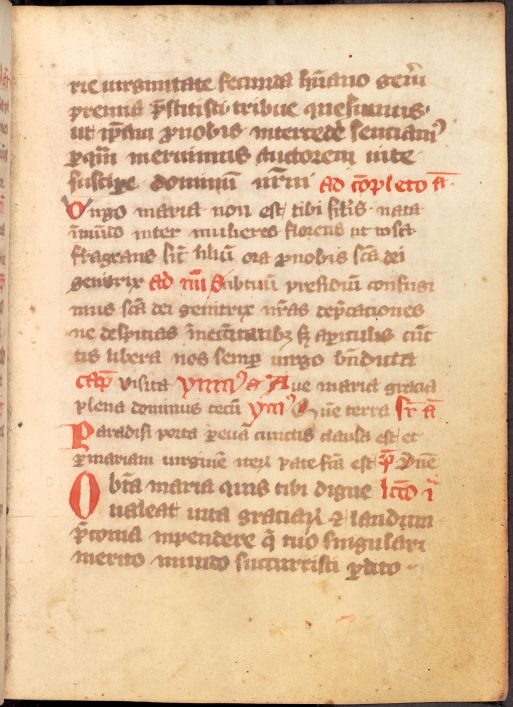 rie virginitate fecunda hūano geñi
premia p̄stitisti tribue quesumus·
ut ip̄am pronobis intercede senciamꝰ
per quā meruimus auctorem vite
suscipe dominū nr̄m ad cōpleto a͞
Virgo maria non est tibi silis nata
in mūdo inter mulieres florens ut rosa
flagrans sic̄ liliū ora pronobis sc̄a dei
genitrix ad nū Sub tuū presidiū confugi
mus sc̄a dei genitrix nr̄as dep̄cationes
ne despicias in necc̄itatibꝫ sꝫ a periculis cūc
tis libera nos semper virgo bn̄dicta
cap̄ visita a͞ Aue maria gracia
plena dominus tecū Que terra a͞
Paradisi porta per euā cunctis clausa est et
per mariam virginē iterū patefc̄a est p̄
O bt̄a maria quis tibi digne lcc̄o i͞
ualeat iura graciarū ⁊ laudum
p̄conia inpendere q̄ tuo singulari
merito mundo succurristi perdito